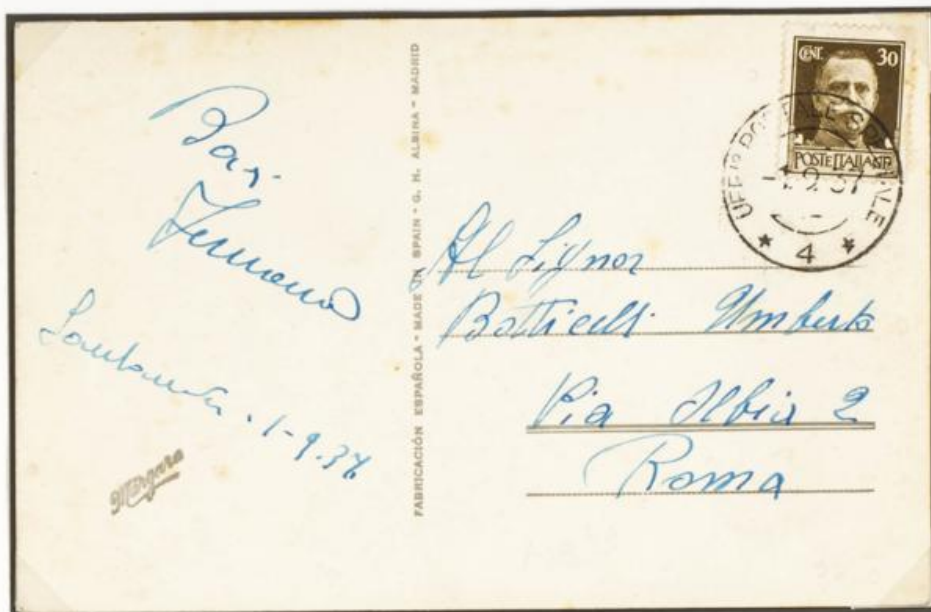 Baci
Santander. 1-9.37
Margara
FABRICACIÓN ESPAÑOLA - MADE IN SPAIN - G. H. ALSINA - MADRID
CENT. 30
POSTE ITALIANE
UFFIO POSTALE SPECIALE
-1.9.37
* 4 *
Al Signor
Botticelli Umberto
Via Albia 2
Roma